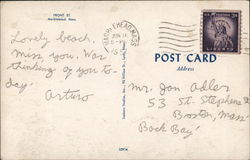 FRONT ST.
Marblehead, Mass.
MARBLEHEAD, MASS.
JUN
LIBERTY
POST CARD
Address
Lovely beach.
Miss you. Was
thinking of you to-
day.
Arturo
Mr. Jon Adler
53 St. Stephens St
Boston, Mass
Back Bay